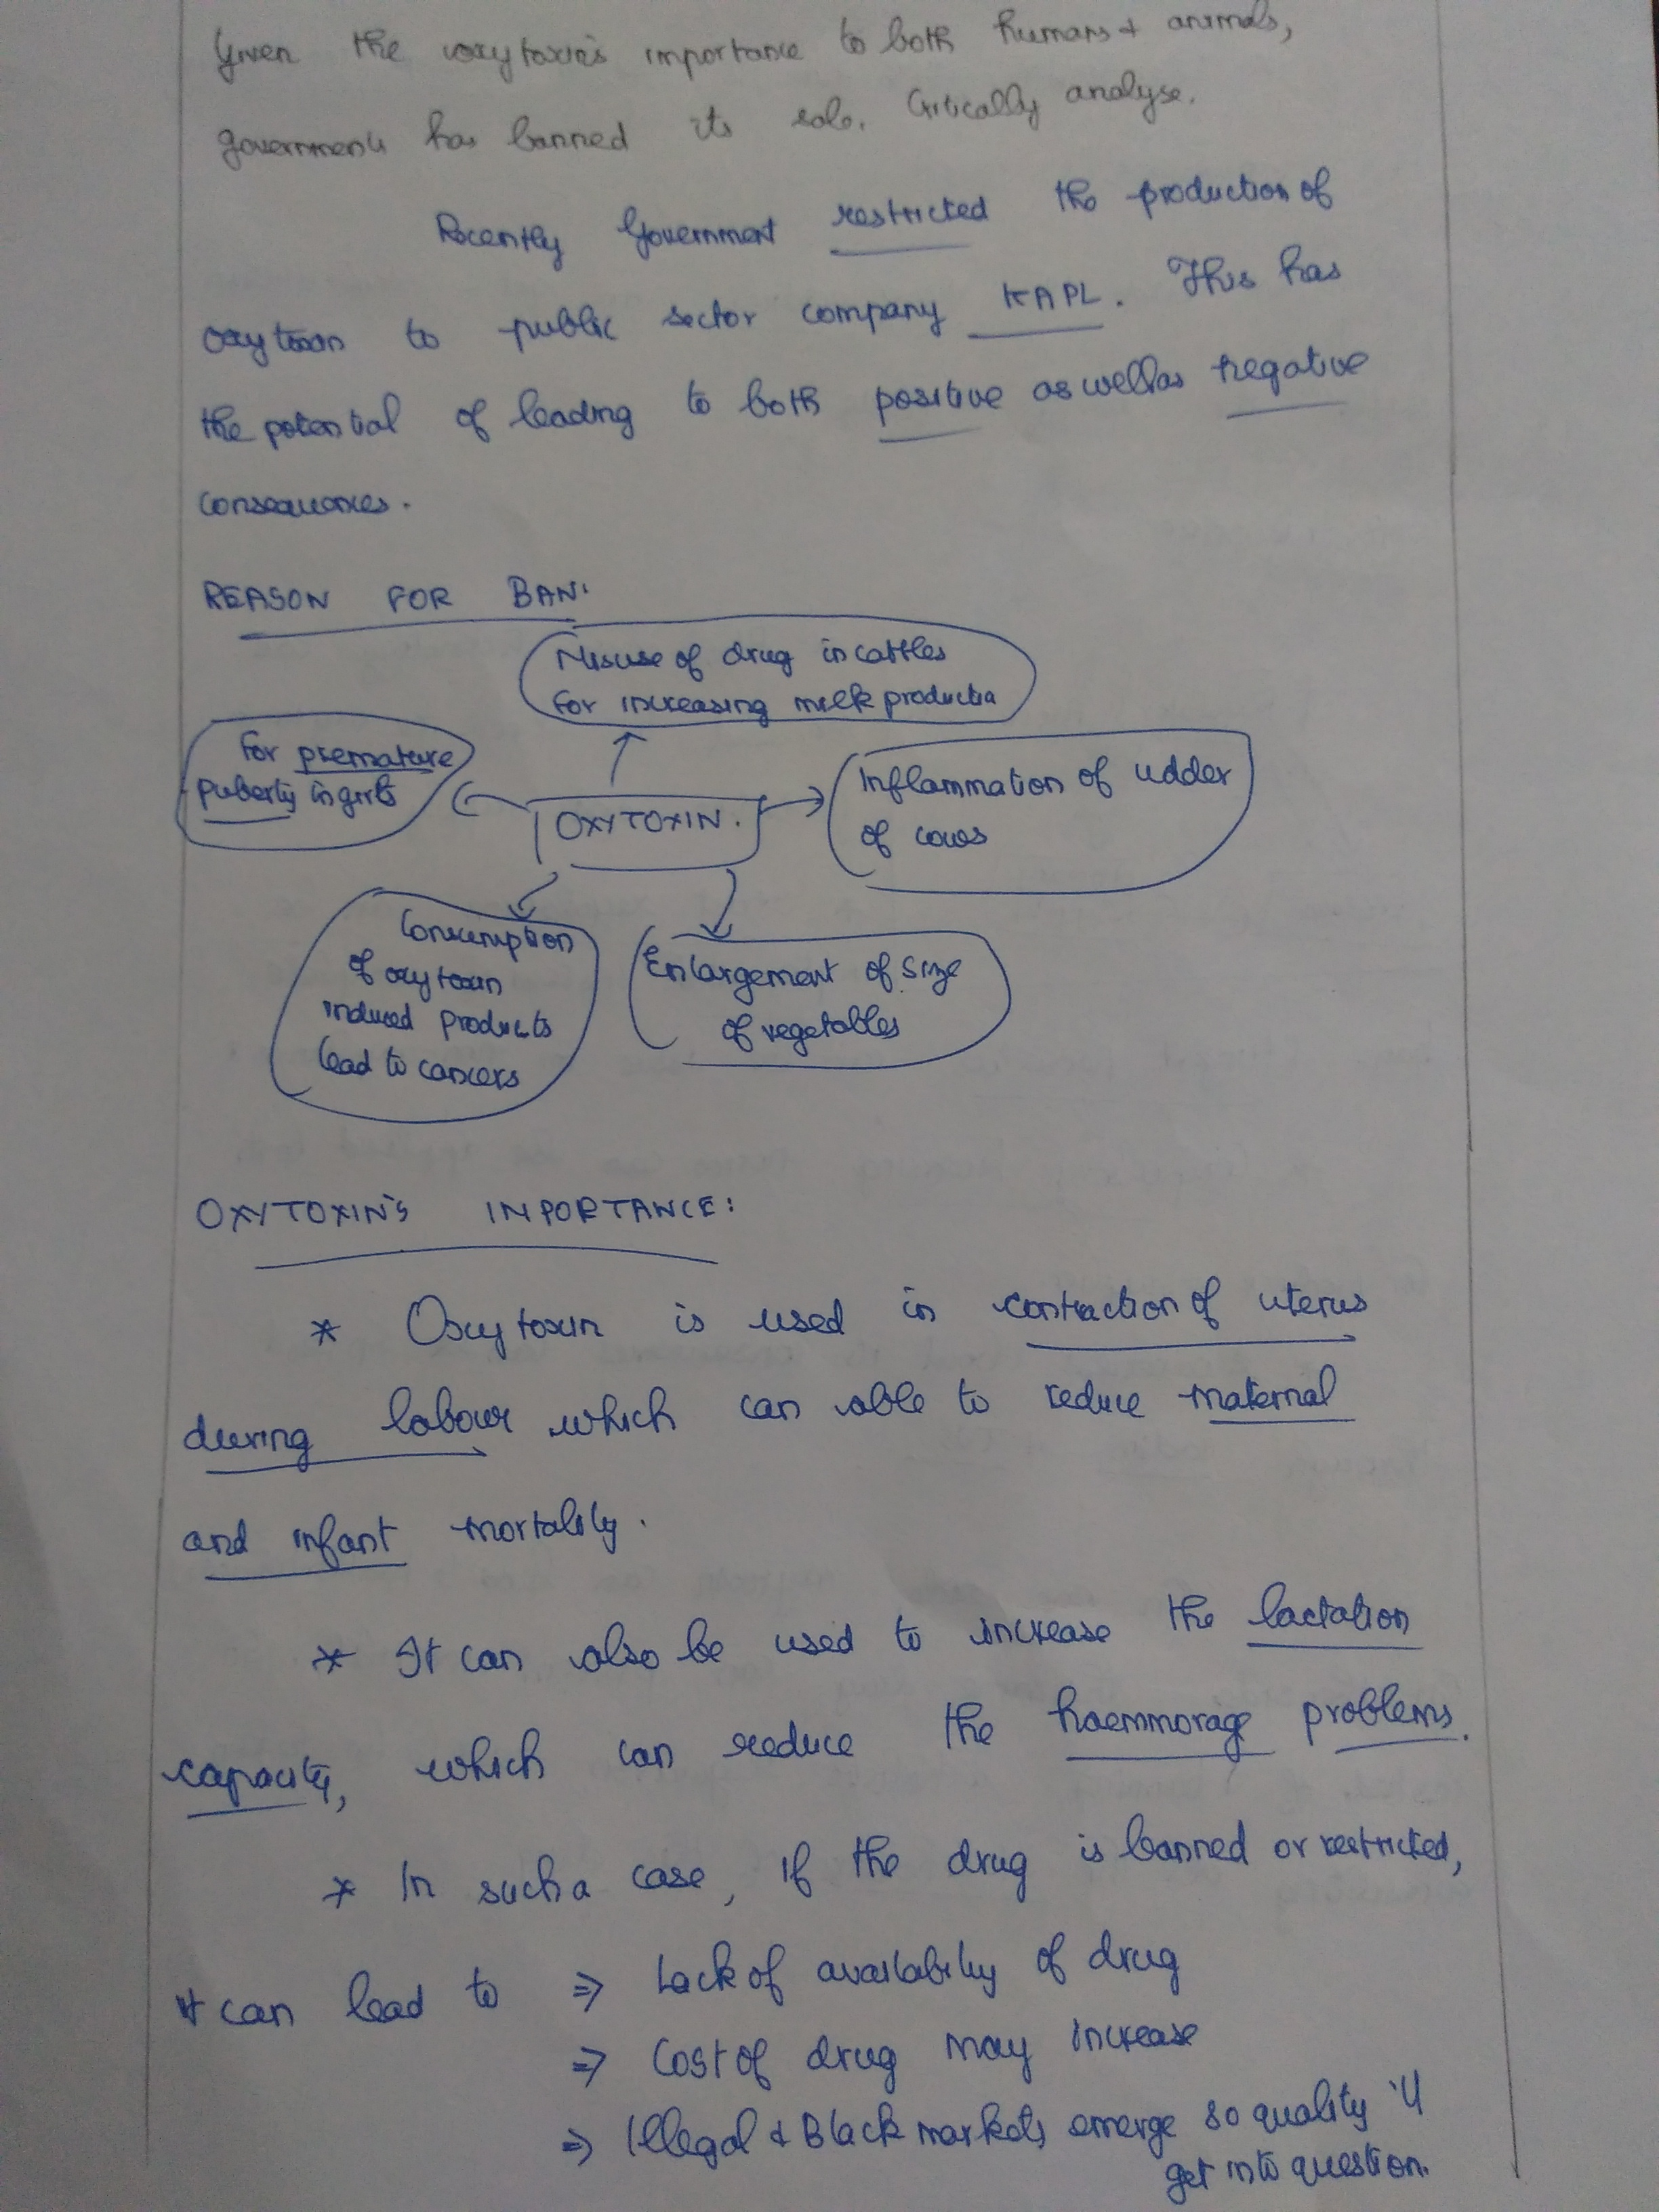 Given the oxytoxin's importance to both humans & animals,
government has banned its sale. Critically analyse.
Recently Government restricted the production of
oxytoxin to public sector company KAPL. This has
the potential of leading to both positive as well as negative
consequences.
REASON FOR BAN:
Misuse of drug in cattles
for increasing milk production
For premature
puberty in girls
OXYTOXIN.
Inflammation of udder
of cows
Consumption
of oxytoxin
induced products
lead to cancers
Enlargement of size
of vegetables
OXYTOXIN'S IMPORTANCE:
* Oxytoxin is used in contraction of uterus
during labour which can able to reduce maternal
and infant mortality.
* It can also be used to increase the lactation
capacity, which can reduce the haemmorage problems.
* In such a case, if the drug is banned or restricted,
it can lead to ⇒ Lack of availability of drug
⇒ Cost of drug may increase
⇒ Illegal & Black markets emerge so quality 'll
get into question.